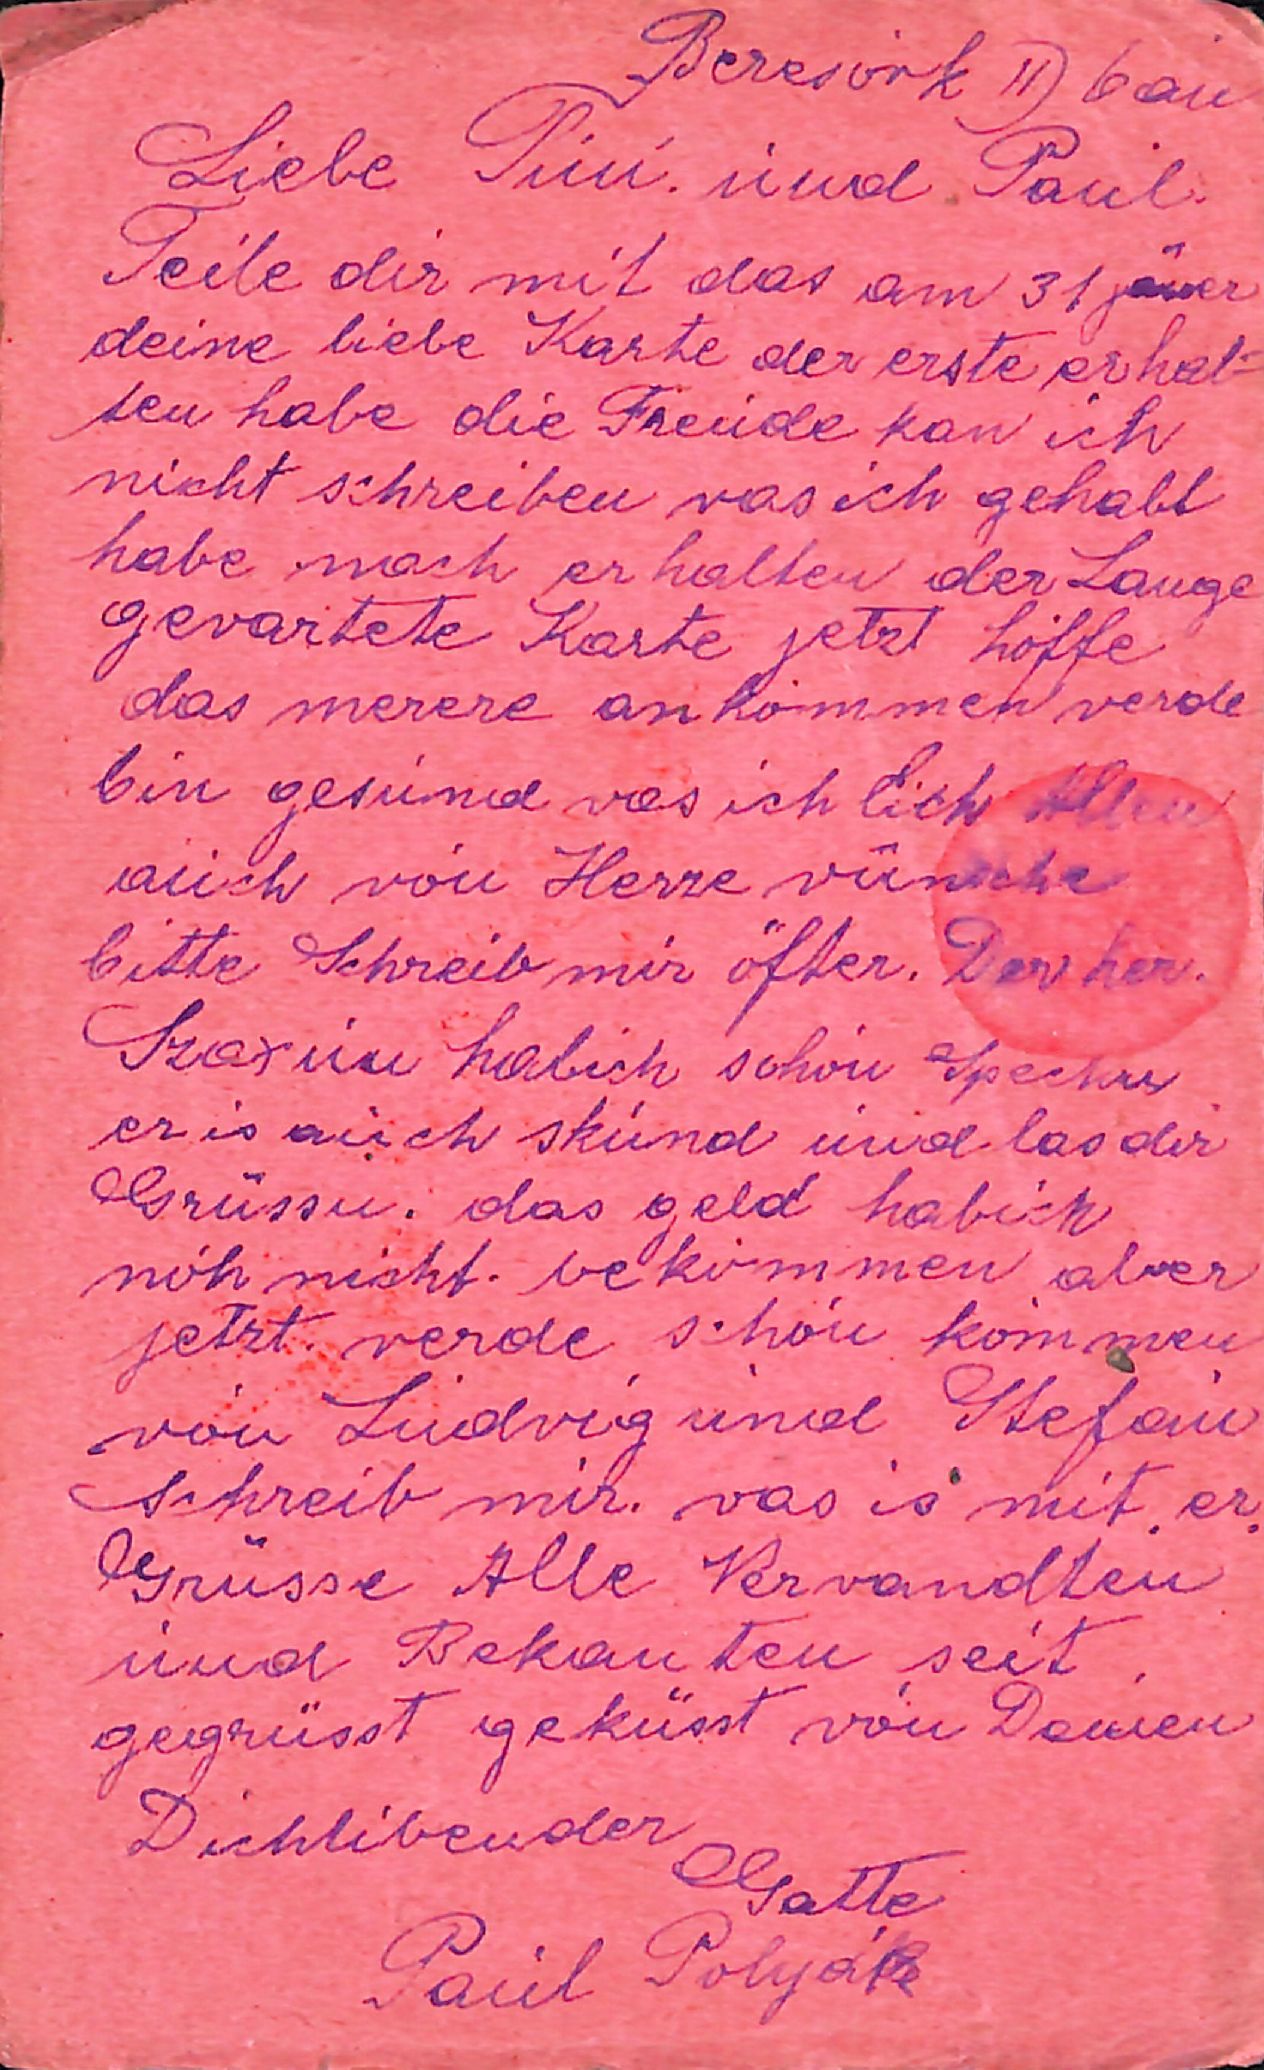 Beresovk II) 6 an
Liebe Tini. und Paul.
Teile dir mit das am 31 jäner
deine liebe Karte der erste erhal-
ten habe die Freude kan ich
nicht schreiben vas ich gehabt
habe nach erhalten der Lange
gevartete Karte jetzt hoffe
das merere ankommen verde
bin gesund vas ich Eich Allen
auch von Herze vünsche
bitte Schreib mir öfter. Den her.
habich schon
er is auch skund und las dir
Grüssn. das geld habich
noh nicht. bekommen aber
jetzt verde schon kommen
von Ludvig und Stefan
schreib mir. vas is mit. er.
Grüsse Alle Vervandten
und Bekanten seit
gegrüsst geküsst von Deinen
Dichlibender
Gatte
Paul Polyák